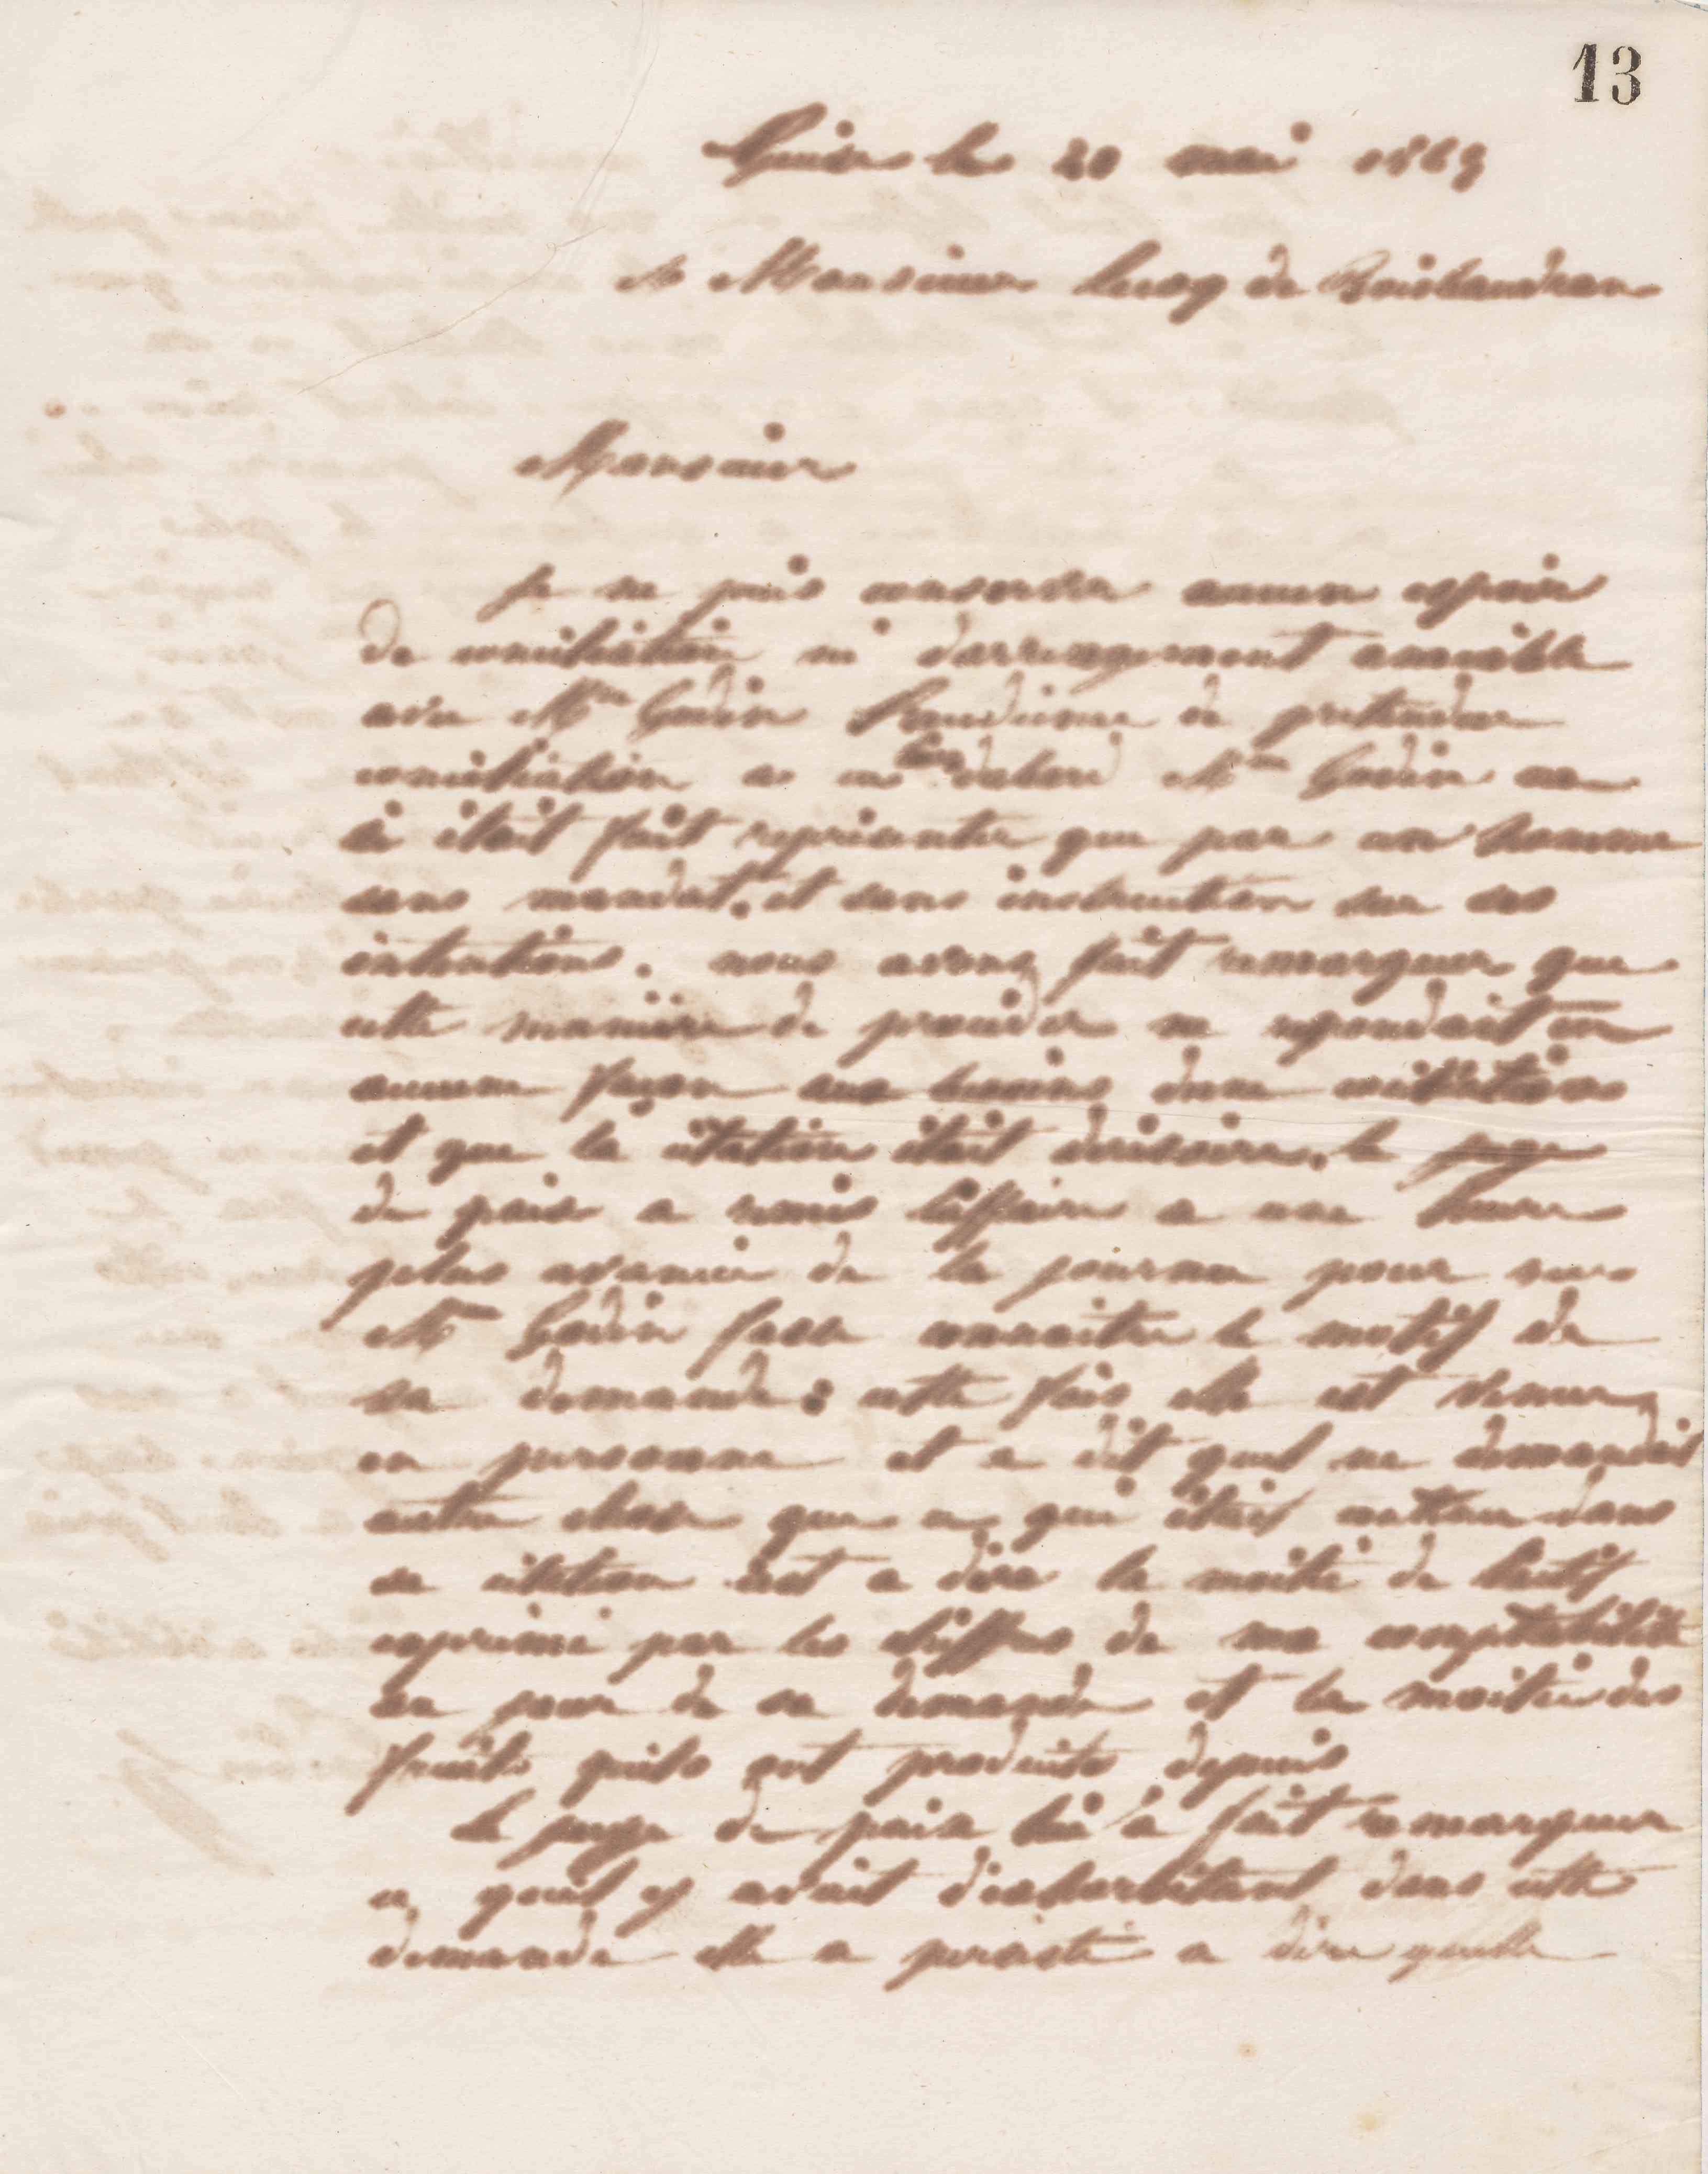 13
Guise le 20 mai 1869
A Monsieur Lecoq de Boisbaudran
Monsieur
Je ne puis conserver aucun espoir
de conciliation ni darrangement amiable
avec Mme Godin l'audience de pretendue
conciliation a eu lieu dabord Mme Godin ne
s'était fait représenter que par un homme
sans mandat et sans instruction sur ses
intentions. nous avons fait remarquer que
cette manière de procéder ne repondait en
aucune façon aux besoins dune conciliation
et que la citation était dérisoire. le juge
de paix a remis l'affaire a une heure
plus avancée de la journée pour que
Mme Godin fasse connaitre le motif de
sa demande: cette fois elle est venue
en personne et a dit quel ne demandait
autre chose que ce qui était contenu dans
sa citation cest a dire la moitié de l'actif
exprimé par les chiffres de ma comptabilité
au jour de sa demande et la moitié des
fruits quils ont produits depuis
Le juge de paix lui a fait remarquer
ce quil y avait d'exhorbitant dans cette
demande elle a persisté a dire quelle